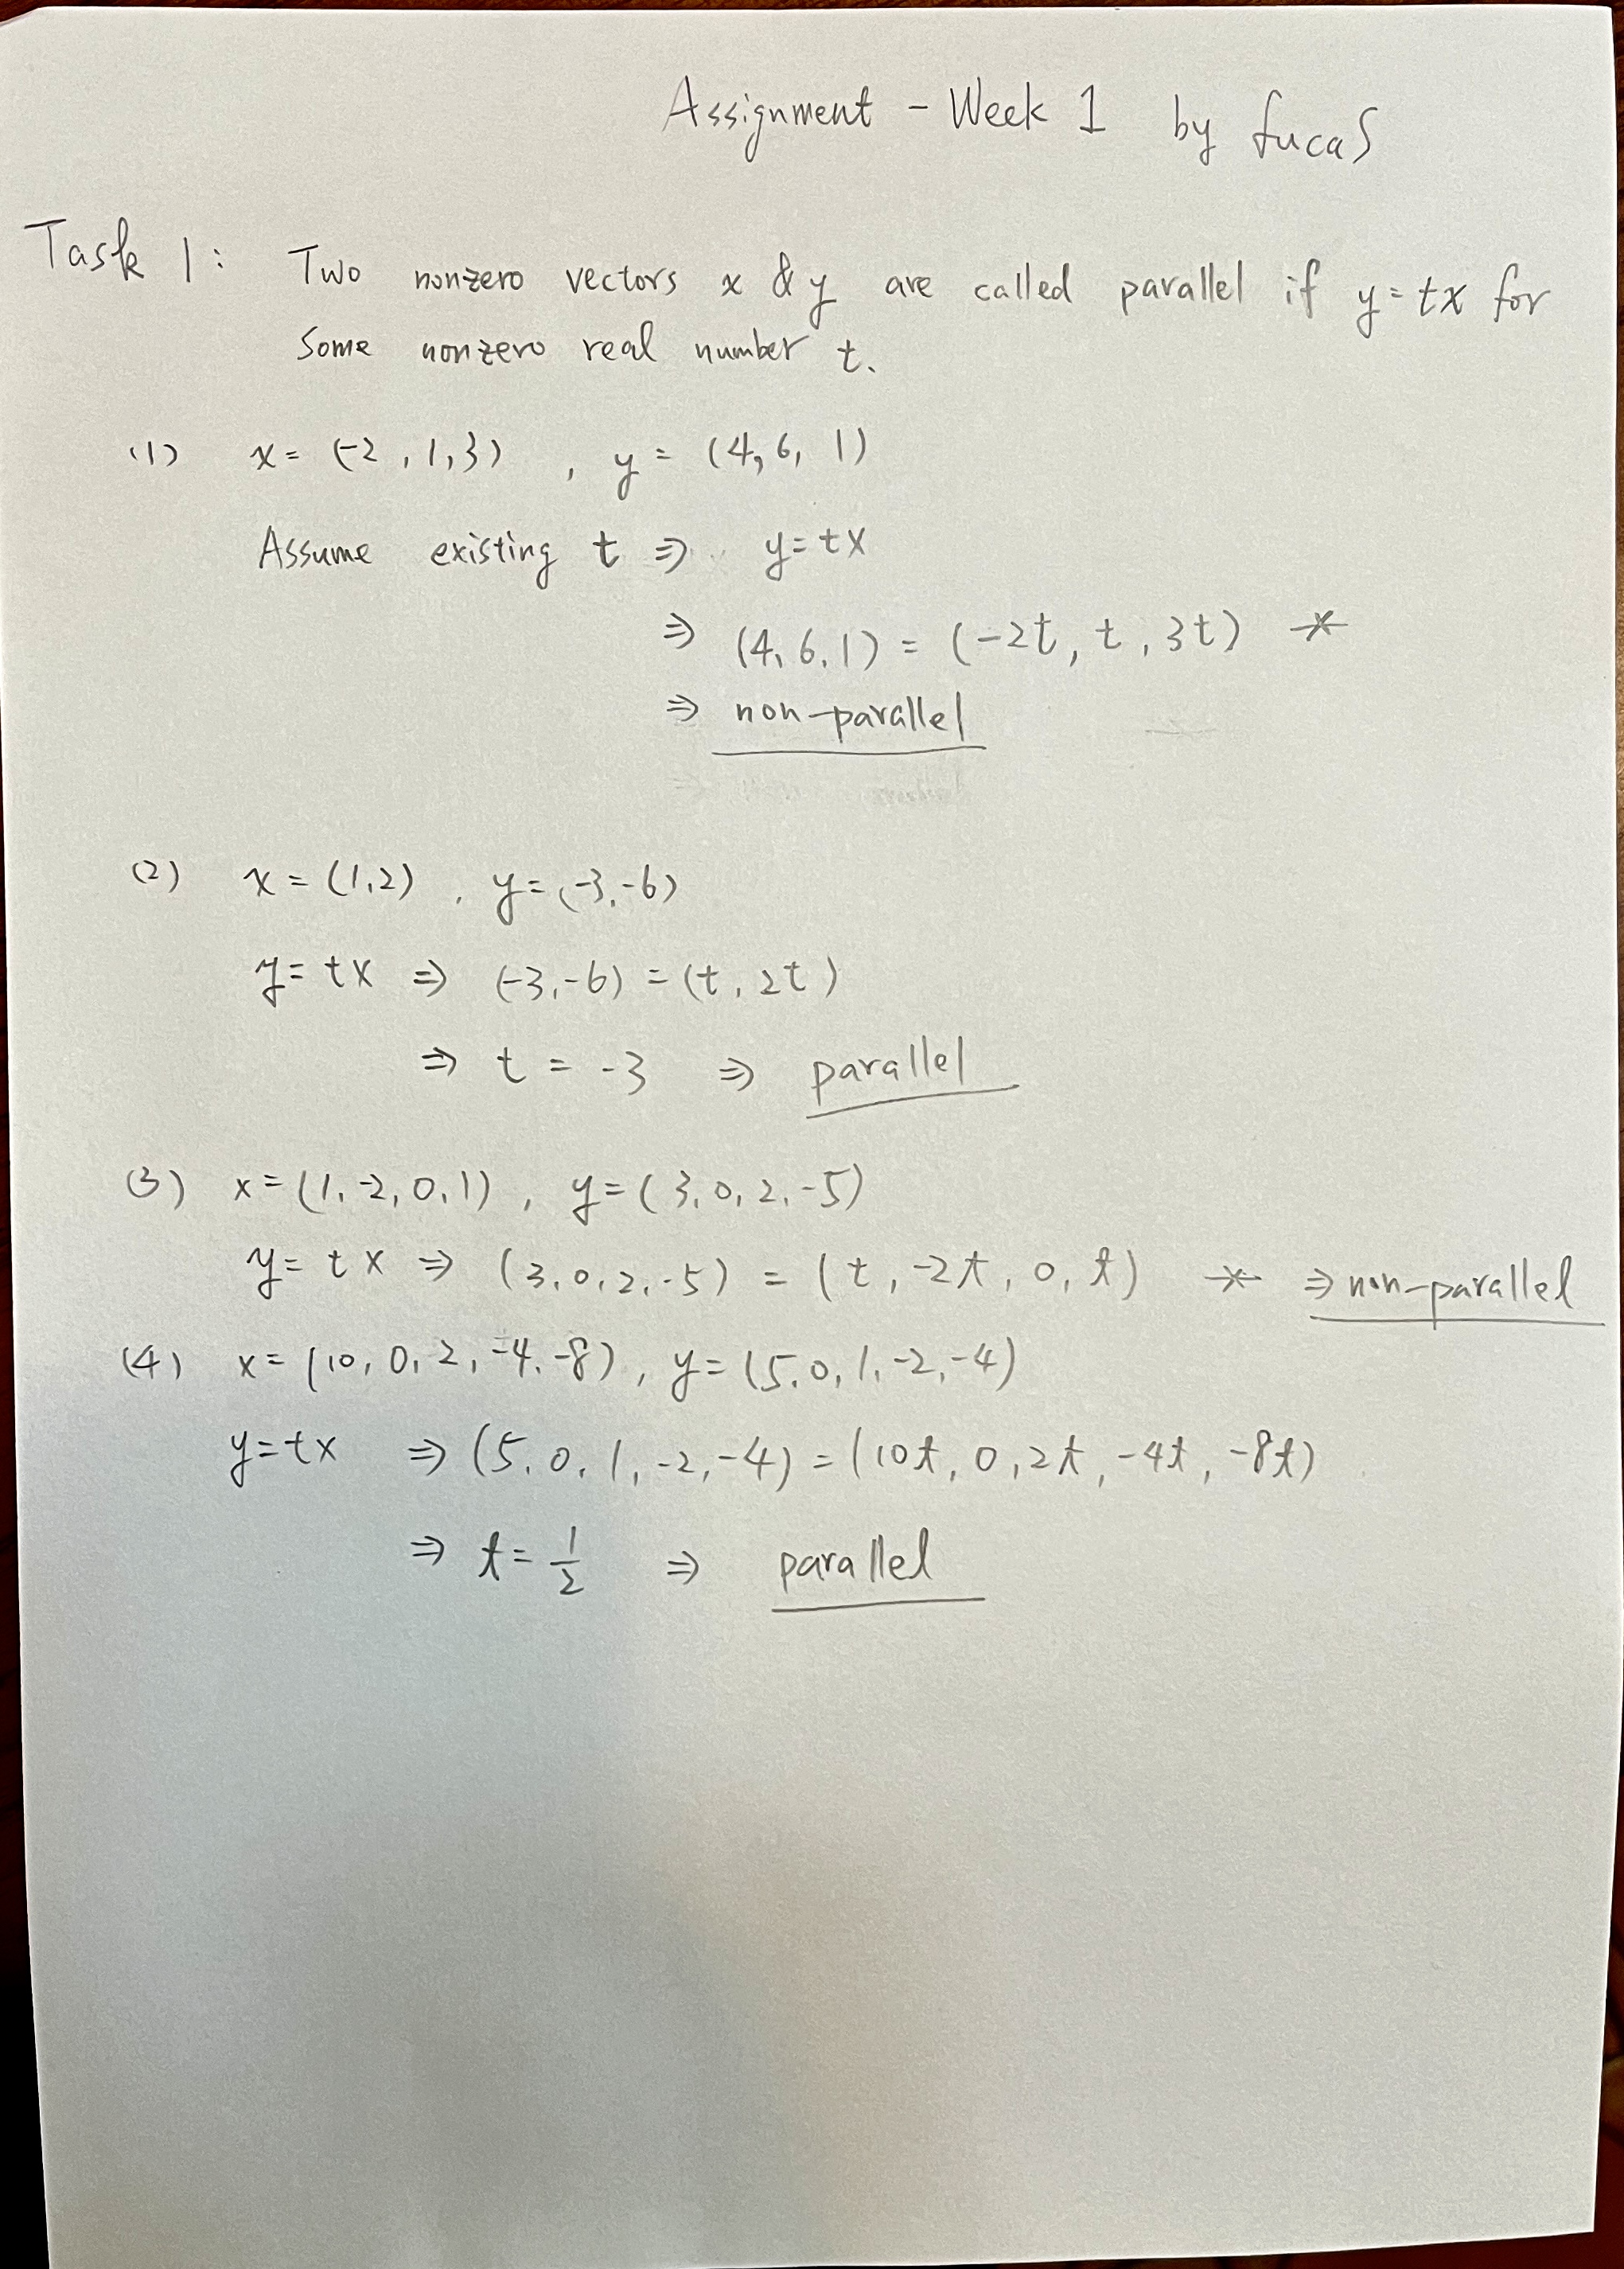 Assignment - Week 1 by lucas
Task 1: Two nonzero vectors x & y are called parallel if y = tx for
some nonzero real number t.
(1) x = (-2, 1, 3), y = (4, 6, 1)
Assume existing t ⇒ y = tx
⇒ (4, 6, 1) = (-2t, t, 3t) ※
⇒ non-parallel
(2) x = (1, 2), y = (-3, -6)
y = tx ⇒ (-3, -6) = (t, 2t)
⇒ t = -3 ⇒ parallel
(3) x = (1, -2, 0, 1), y = (3, 0, 2, -5)
y = tx ⇒ (3, 0, 2, -5) = (t, -2t, 0, t) ※ ⇒ non-parallel
(4) x = (10, 0, 2, -4, -8), y = (5, 0, 1, -2, -4)
y = tx ⇒ (5, 0, 1, -2, -4) = (10t, 0, 2t, -4t, -8t)
⇒ t = 1/2 ⇒ parallel